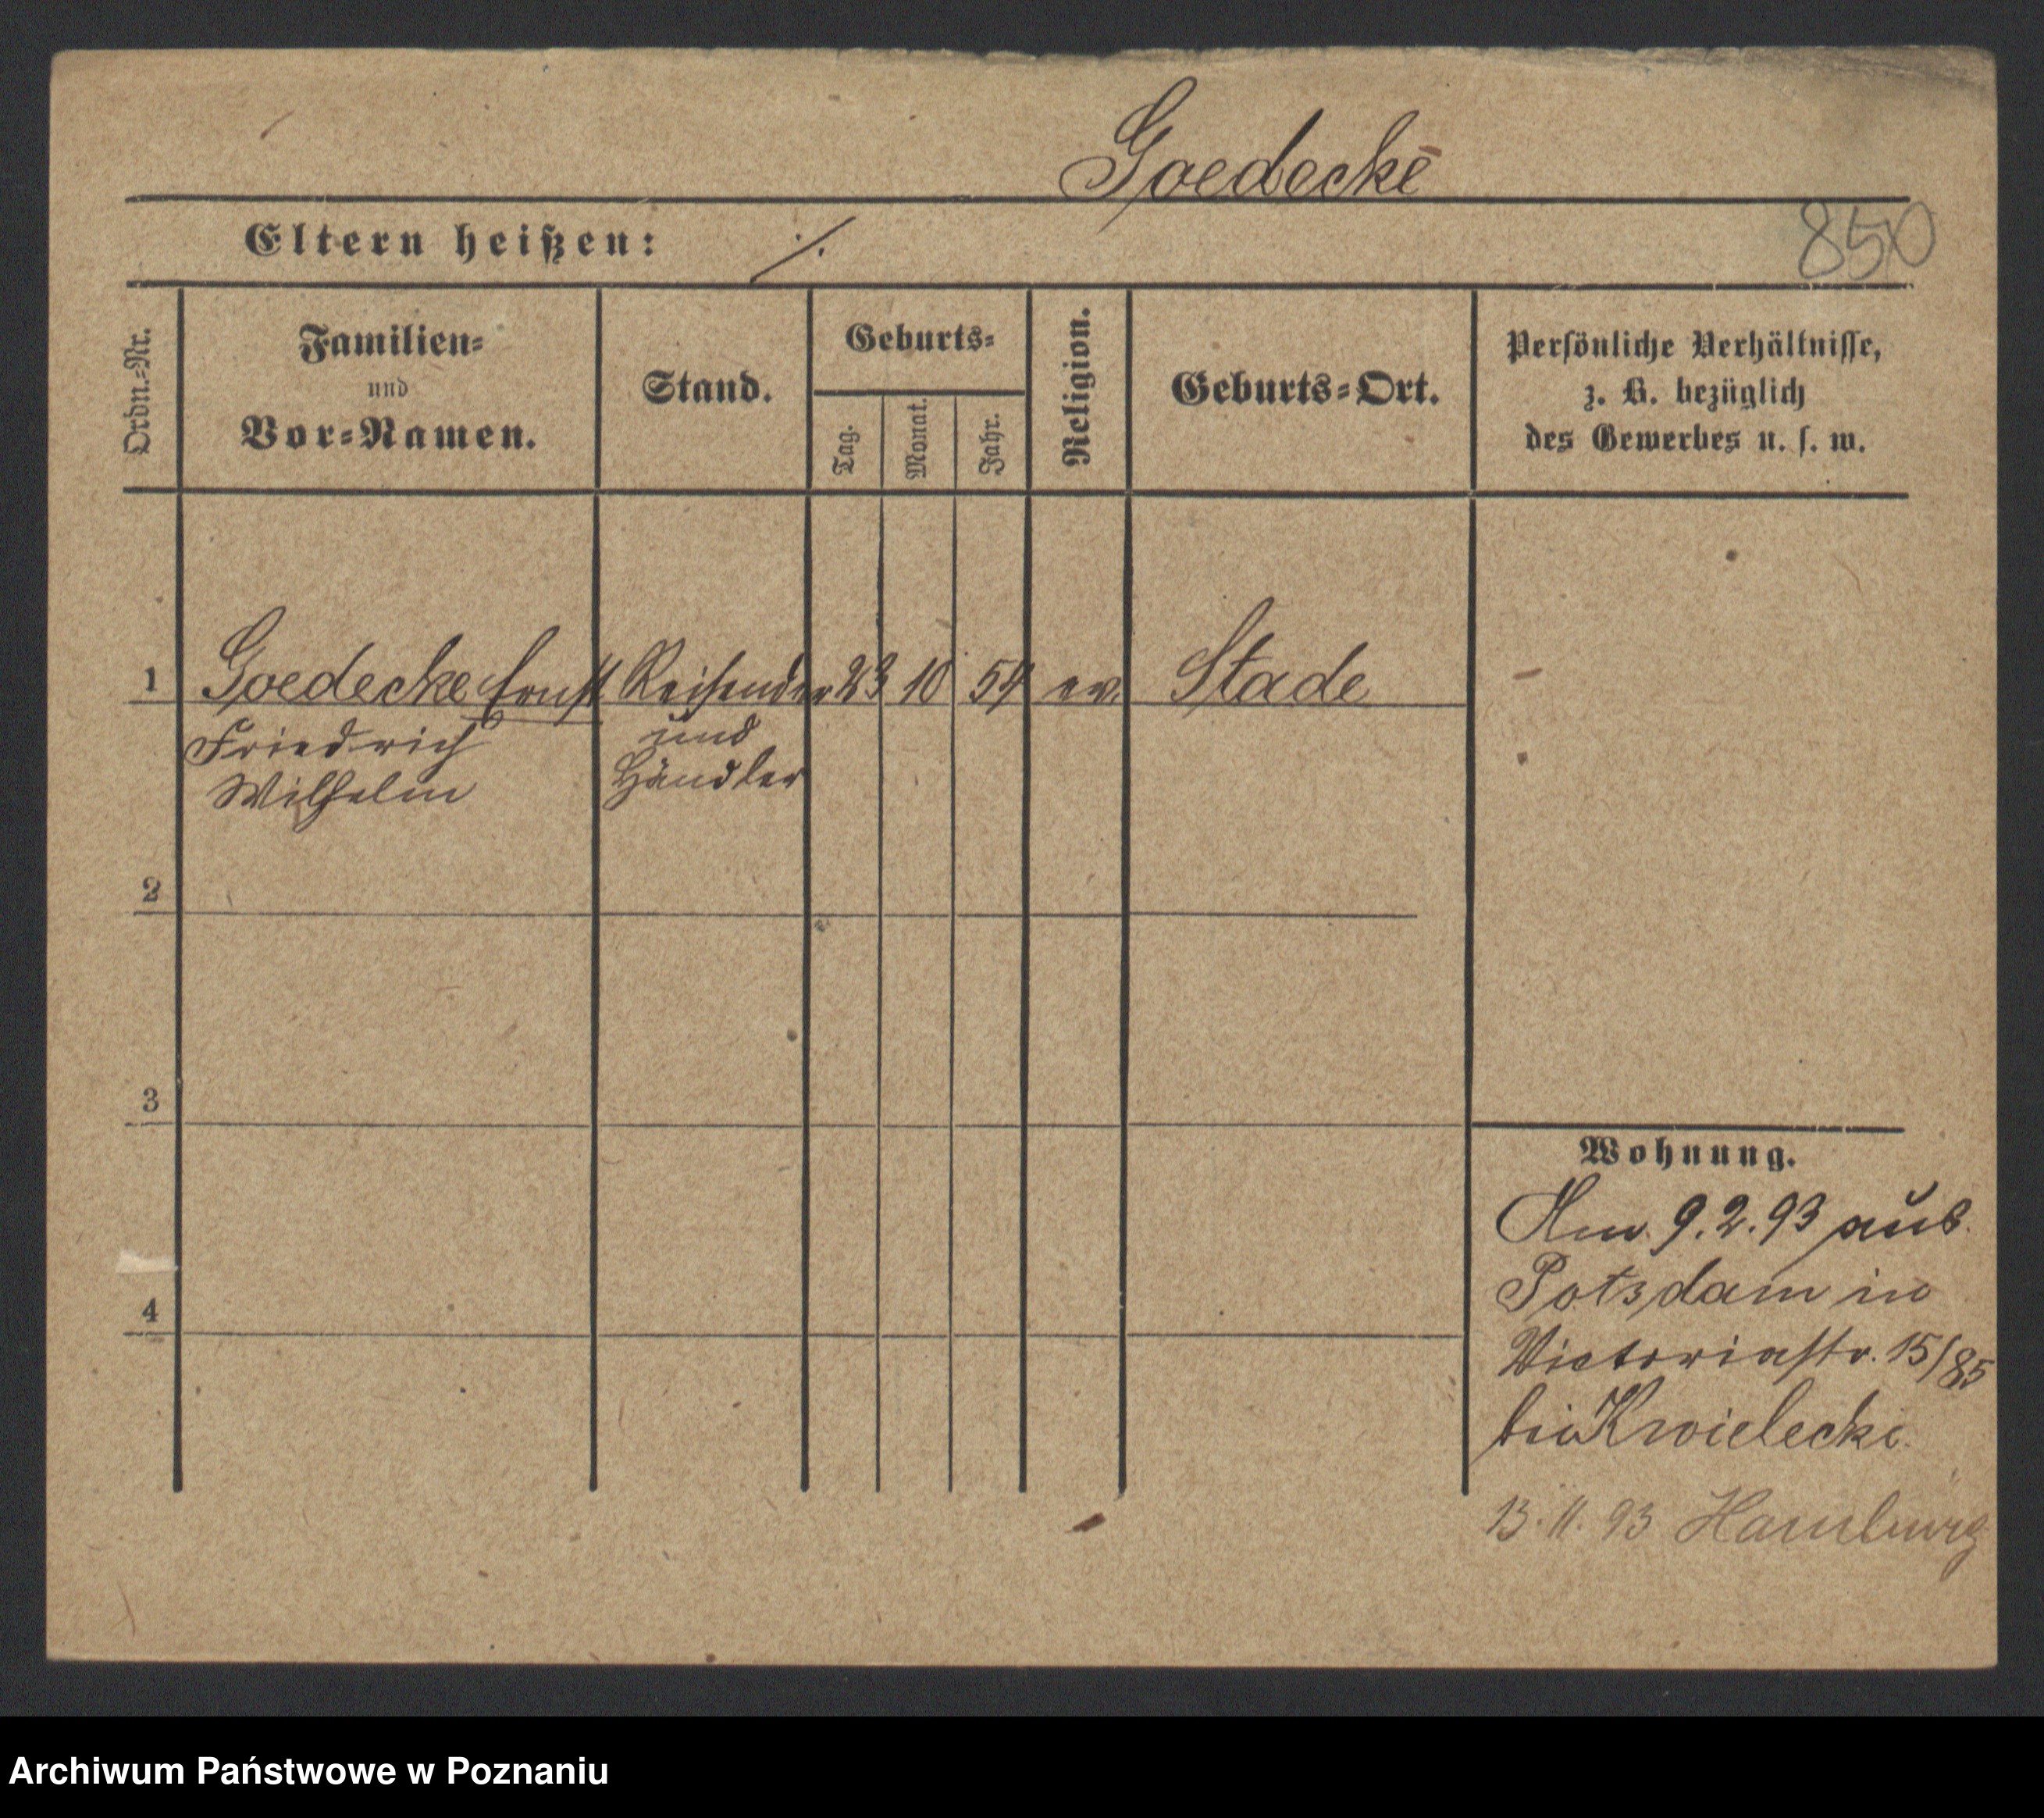 Goedecke
Eltern heißen: ·/.
850
Ordn.-Nr.
Familien-
und
Vor-Namen.
Stand.
Geburts-
Tag.
Monat.
Jahr.
Religion.
Geburts-Ort.
Persönliche Verhältnisse,
z. B. bezüglich
des Gewerbes u. s. w.
1 Goedecke Ernst Reisender 23 10 54 ev. Stade
Friedrich und
Wilhelm Händler
2
3
4
Wohnung.
Am 9.2.93 aus
Potsdam in
Victoriastr. 15/85
bei Kwielecki
13.11.93 Hamburg
Archiwum Państwowe w Poznaniu